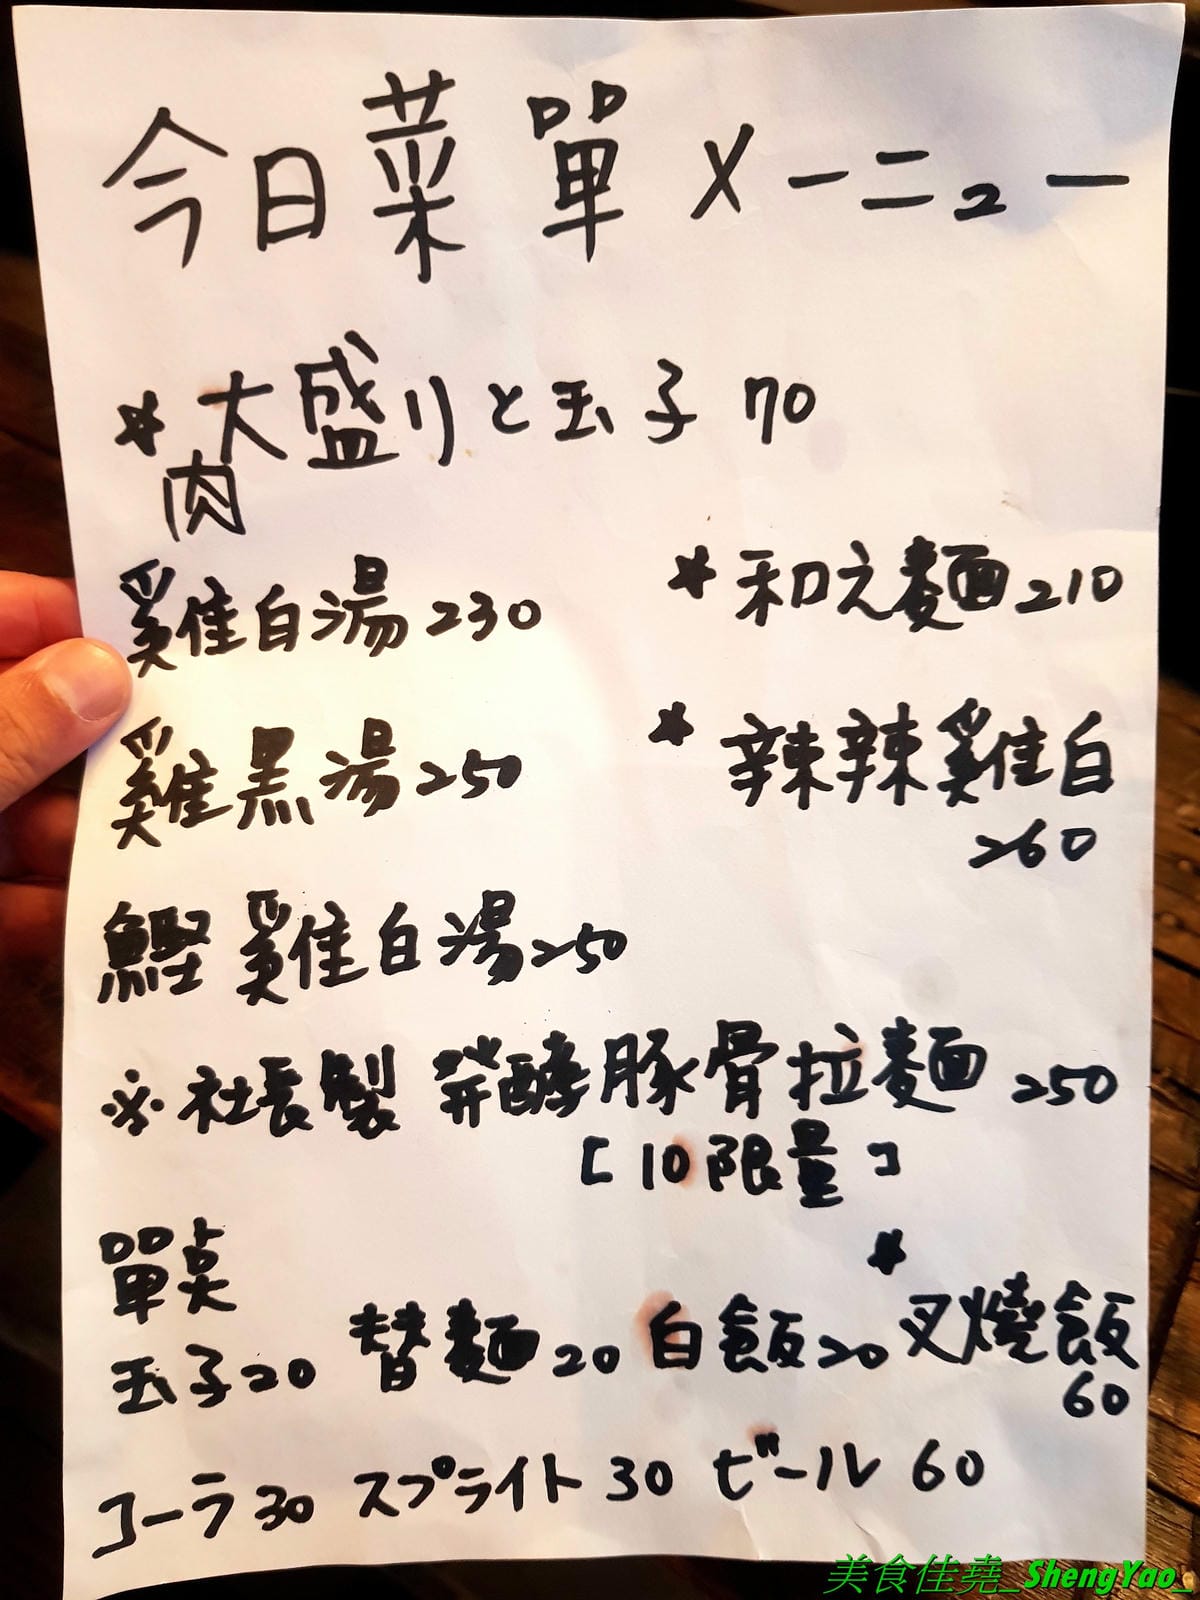 今日菜單 メーニュー
★大盛りと玉子 70
肉
雞白湯230
★和え麺210
雞黒湯250
★辣辣雞白
260
鰹雞白湯250
※社長製 発酵豚骨拉麺 250
[10限量]
單点
玉子20 替麺20 白飯20 ★叉燒飯
60
コーラ30 スプライト 30 ビール 60
美食佳堯_ShengYao_